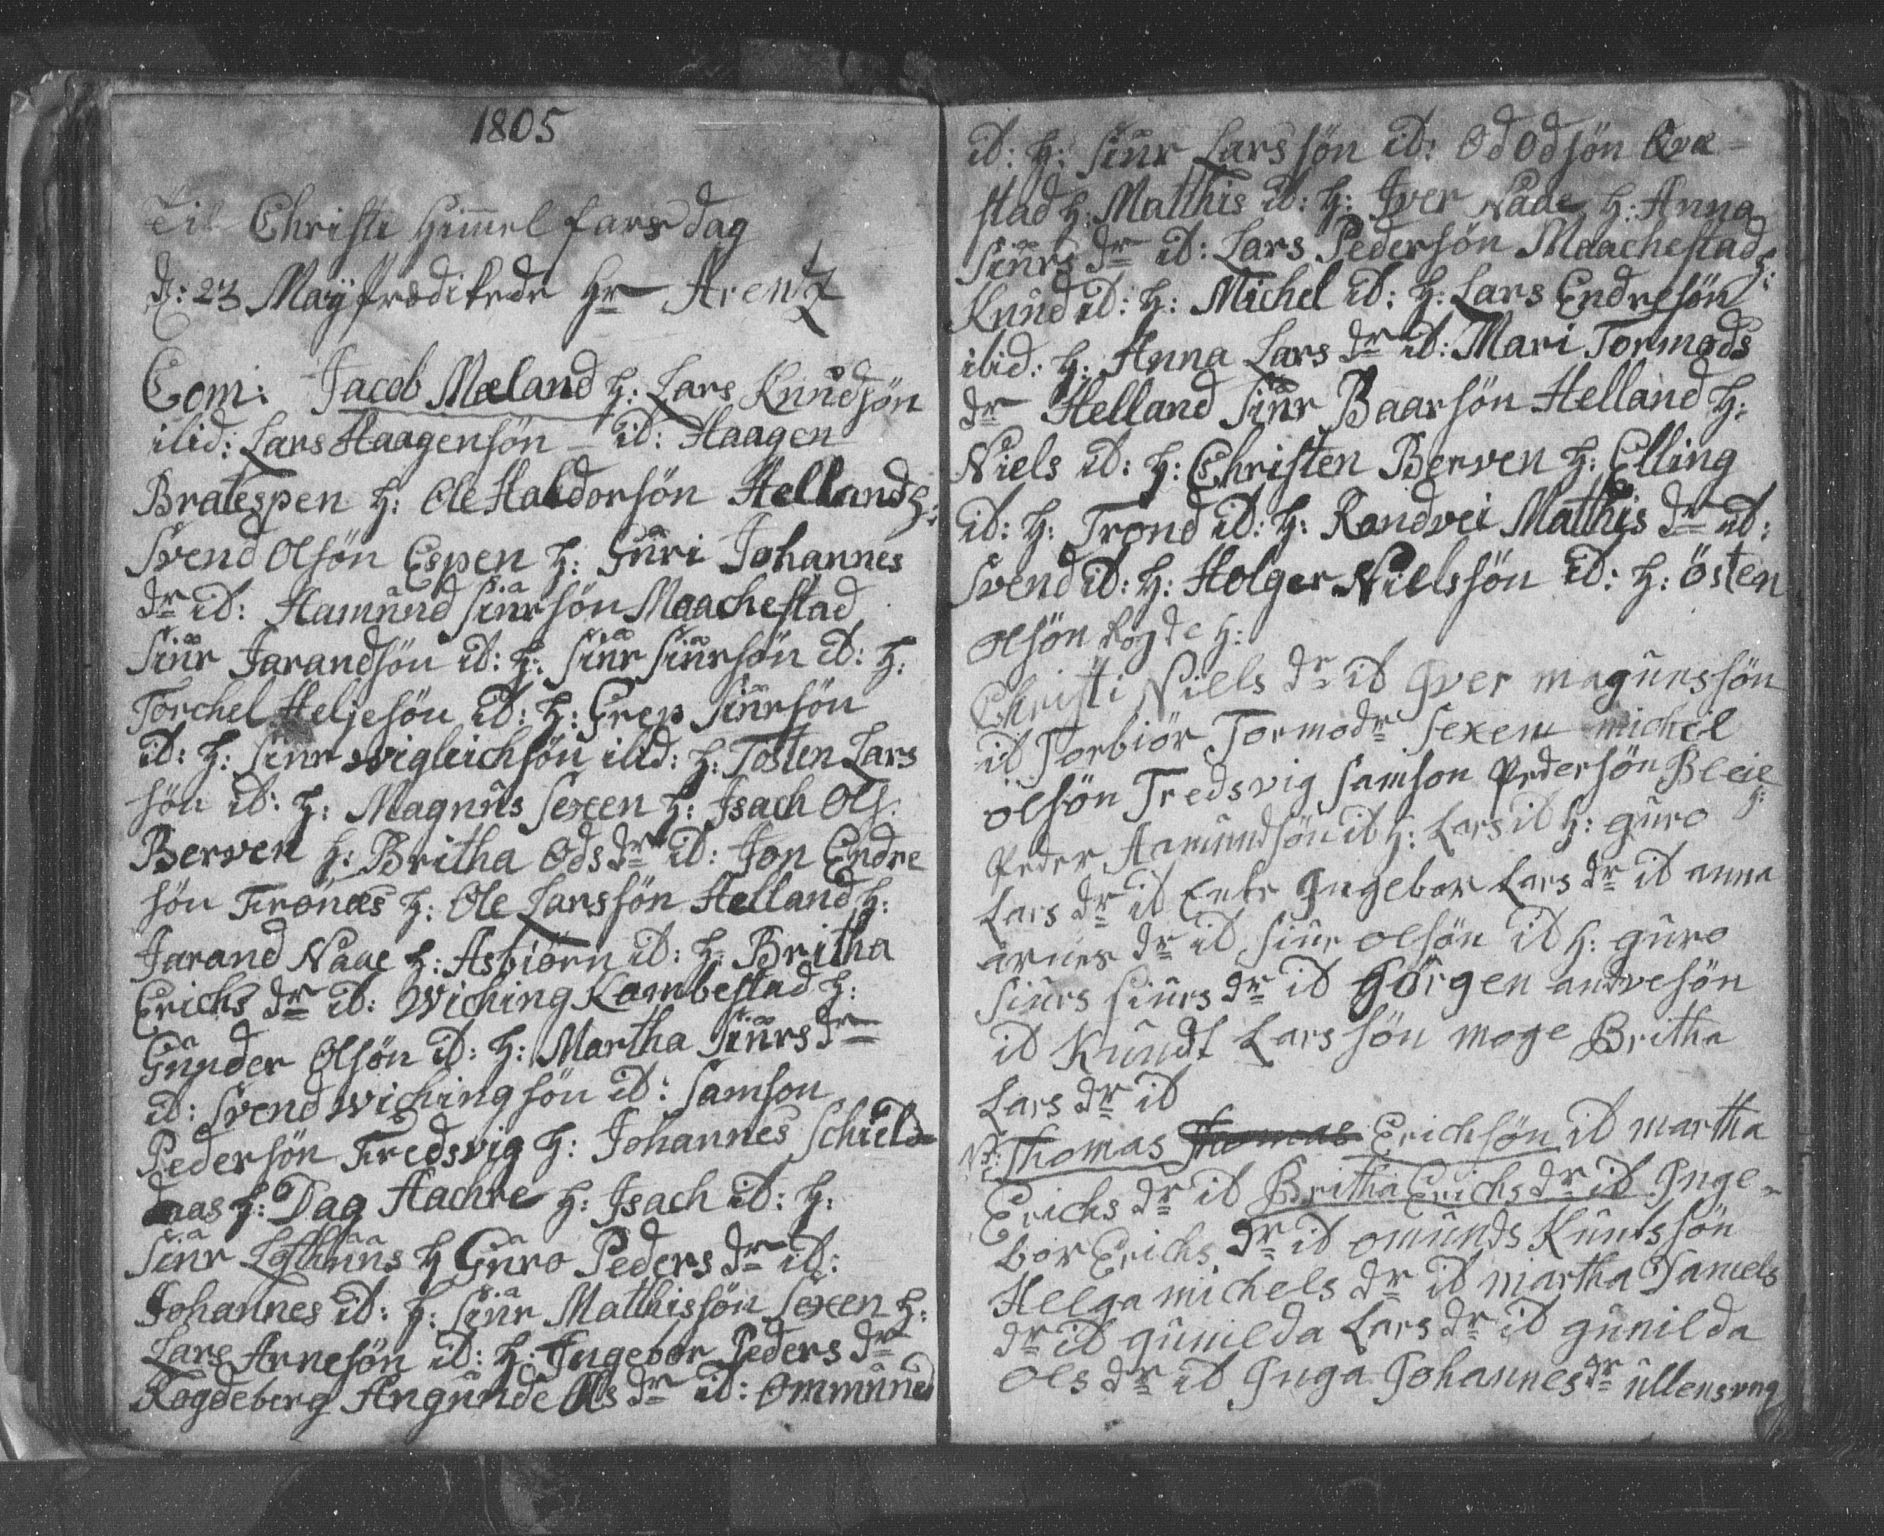 1805
Til Christi Himmelfarsdag
d: 23 Maÿ prædikede Hr Arentz
Com: Jacob Mæland h: Lars Knudsøn
ibid: Lars Haagensøn – id: Haagen
Bratespen h: Ole Haldorsøn Helland h:
Svend Olsøn Espen h: Guri Johannes
dr id: Hamund Siursøn Maachestad
Siur Jarandsøn id: h: Siur Siursøn id: h:
Torchel Heljesøn id: h: Grep Siursøn
id: h: Siur Wigleichsøn ibid: h: Tosten Lars
søn id: h: Magnus Sexen h: Isach Ols:
Berven h: Britha Ods dr id: Jon Endre
søn Tronæs h: Ole Larssøn Helland h:
Jarand Naae h: Asbiørn id: h: Britha
Erichs dr id: Wiching Kambestad h:
Gunder Olsøn id: h: Martha Siurs dr
id: Svend Wichingsøn id: Samson
Pedersøn Tredsvig h: Johannes Schiel
daas h: Dag Aachre h: Isach id: h:
Siur Lothuus h Guro Peders dr id:
Johannes id: h: Siur Matthissøn Sexen h:
Lars Arnesøn id: h: Ingebor Peders dr
Rogdeberg Angunde Ols dr id: Ommund
id: h: Siur Larssøn id: Od Odsøn Qvæ-
stad h: Matthis id: h: Iver Naae h: Anna
Siurs dr id: Lars Pedersøn Maachestad h:
Knud id: h: Michel id: h: Lars Endresøn
ibid: h: Anna Lars dr id: Mari Tormods
dr Helland Siur Baarsøn Helland h:
Niels id: h: Christen Berven h: Elling
id: h: Trond id: h: Randvei Mathis dr id:
Svend id: h: Holger Nielssøn id: h: Østen
Olsøn Rogde h:
Christi Niels dr id Iver magunssøn
id Torbiør Tormodr Sexem michel
olsøn Tredsvig Samson Pedersøn Bleie h:
Peder Aamundsøn id h: Lars id h: guro
Lars dr id Enke Ingebor Lars dr id anna
arnes dr id Siur olsøn id h: guro
Siurs Siurs dr id Gørgen andresøn
id Kundt Larssøn moge Britha
Lars dr id
Thomas Thomas Erichsøn id martha
Erichs dr id Britha Erichs dr id Inge-
bor Erichs dr id omunds Kuntssøn
Helga michels dr id martha Daniels
dr id gunilda Lars dr id gunilda
ols dr id Inga Johannes dr ullensvng